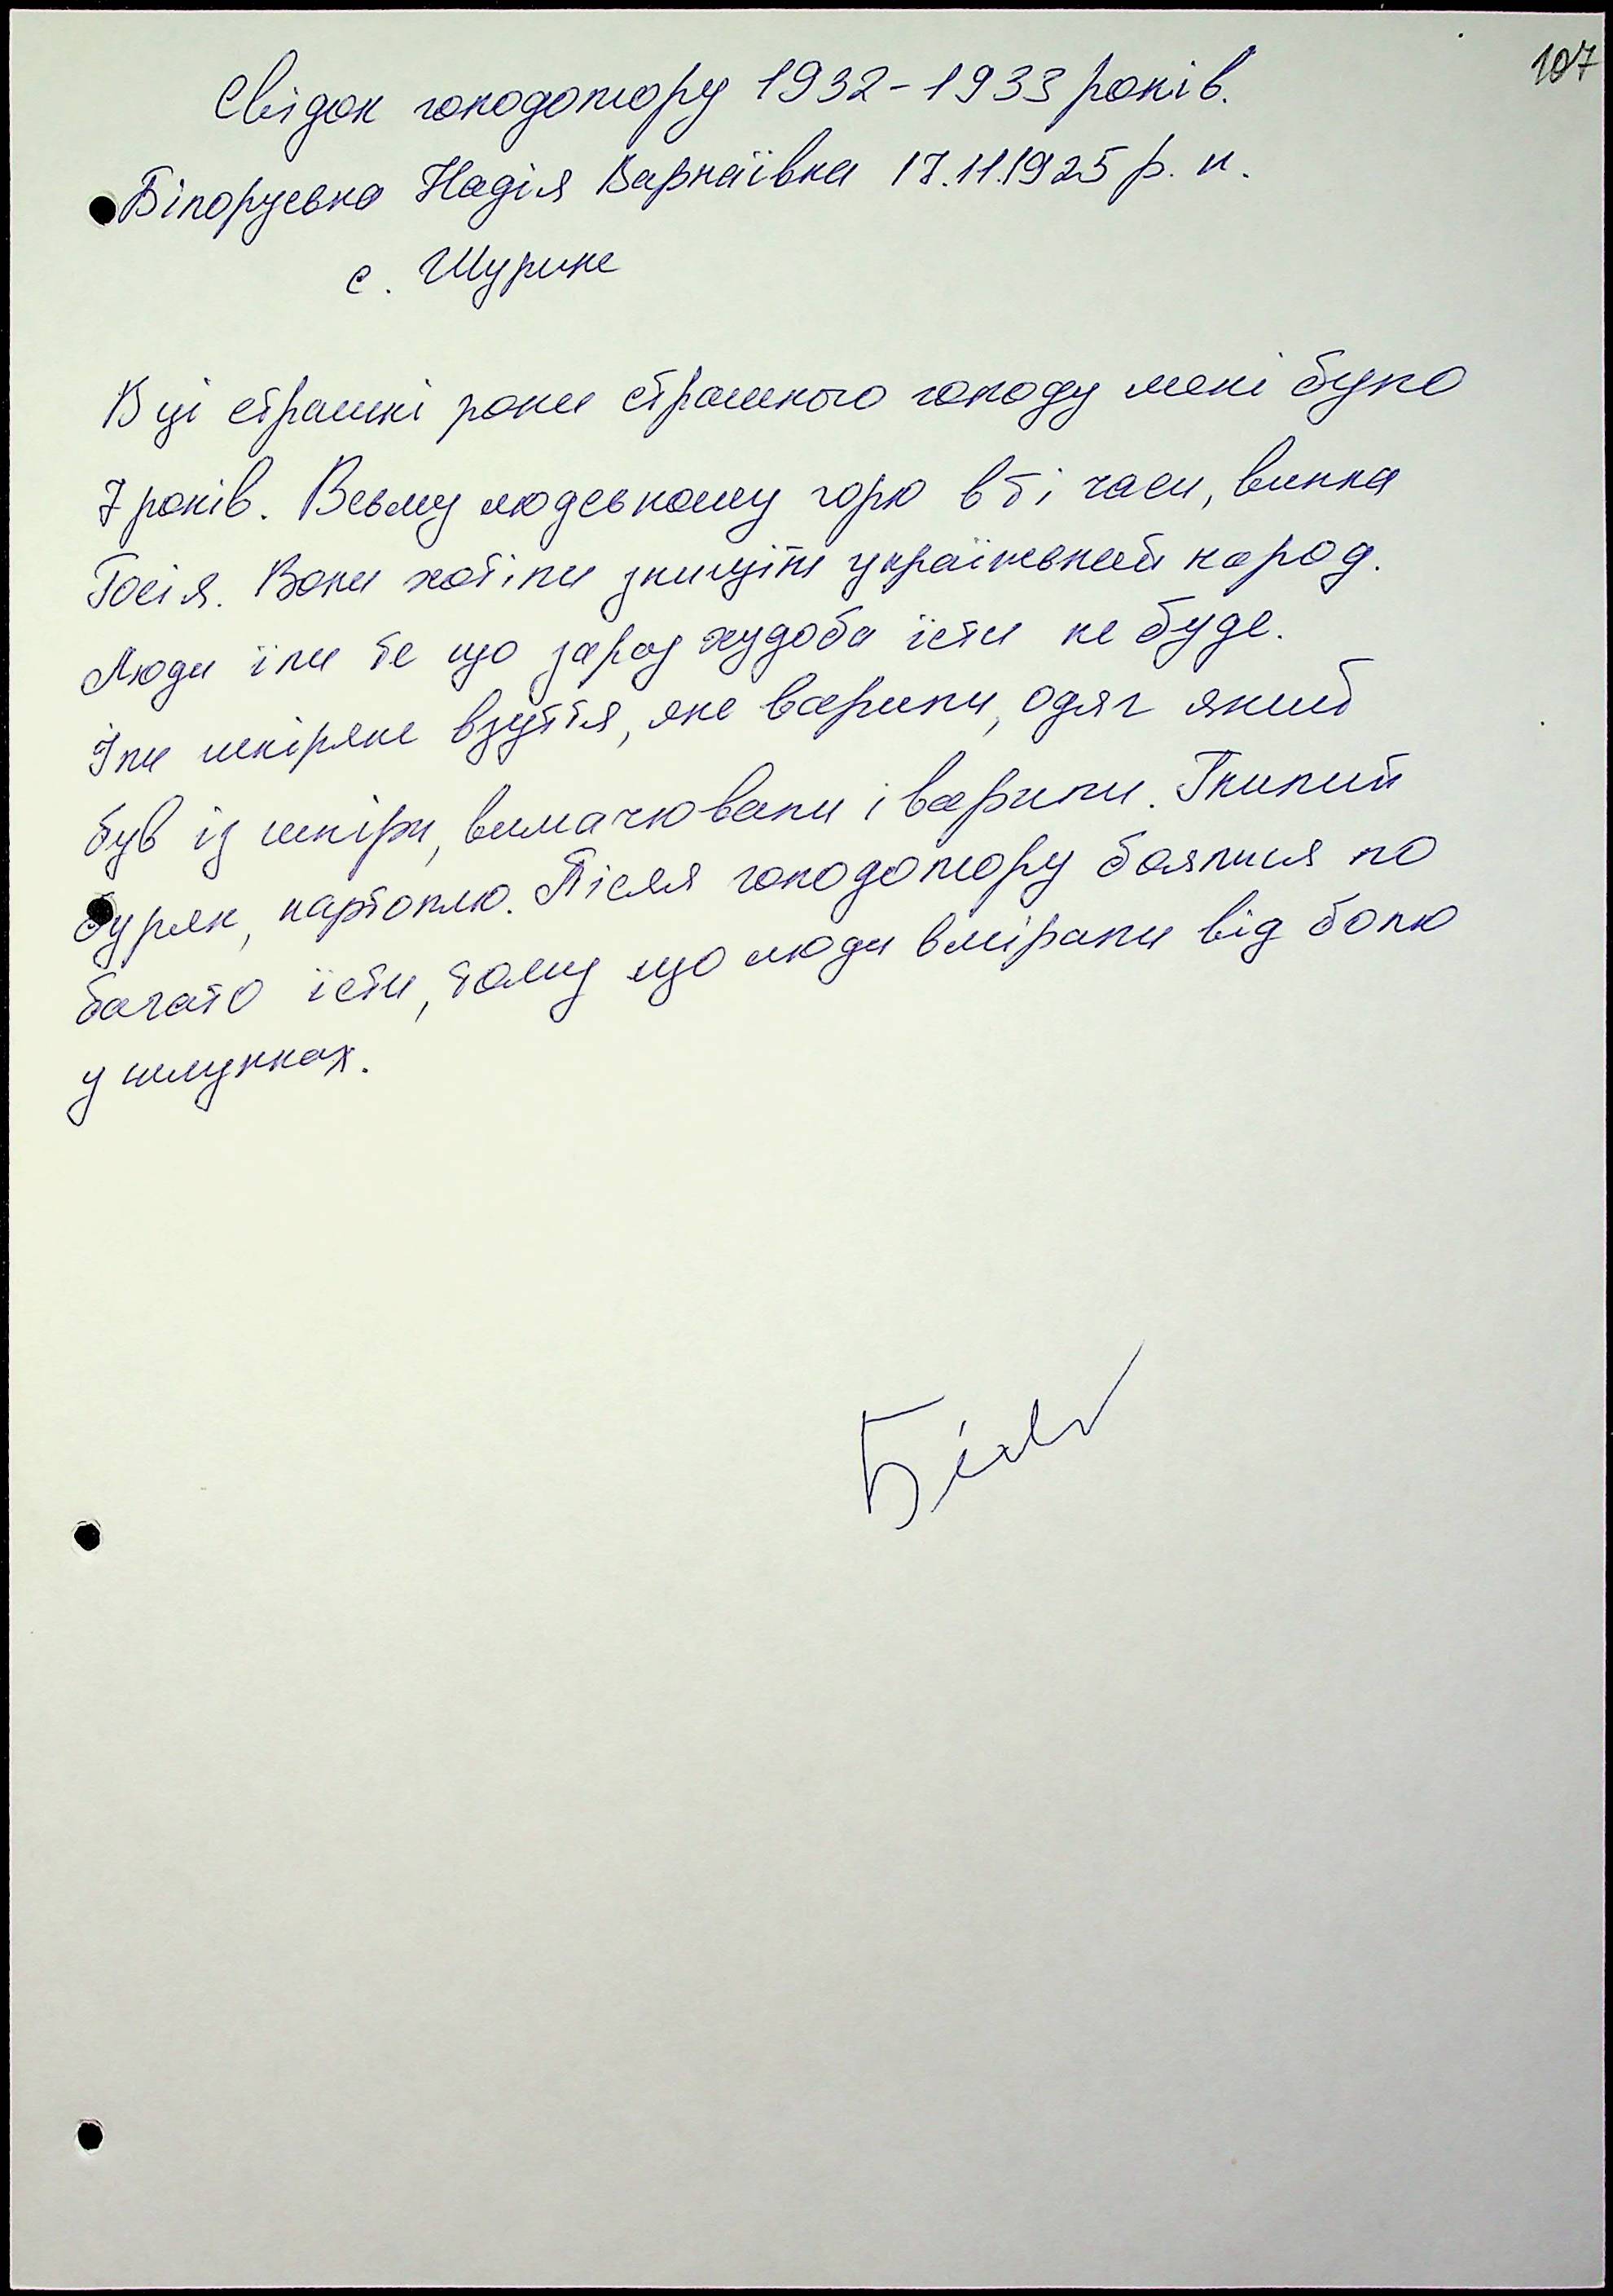 107
Свідок голодомору 1932-1933 років.
Білоруська Надія Варнаївна 17.11.1925 р. н.
с. Шурине
В ці страшні роки страшного голоду мені було
7 років. Всьому людському горю в ті часи, винна
Росія. Вони хотіли знищіти український народ.
Люди їли те що зараз худоба їсти не буде.
Їли шкіряне взуття, яке варили, одяг який
був із шкіри, вимачювали і варили. Гнилий
буряк, картоплю. Після голодомору боялися по
багато їсти, тому що люди вмірали від болю
у шлунках.